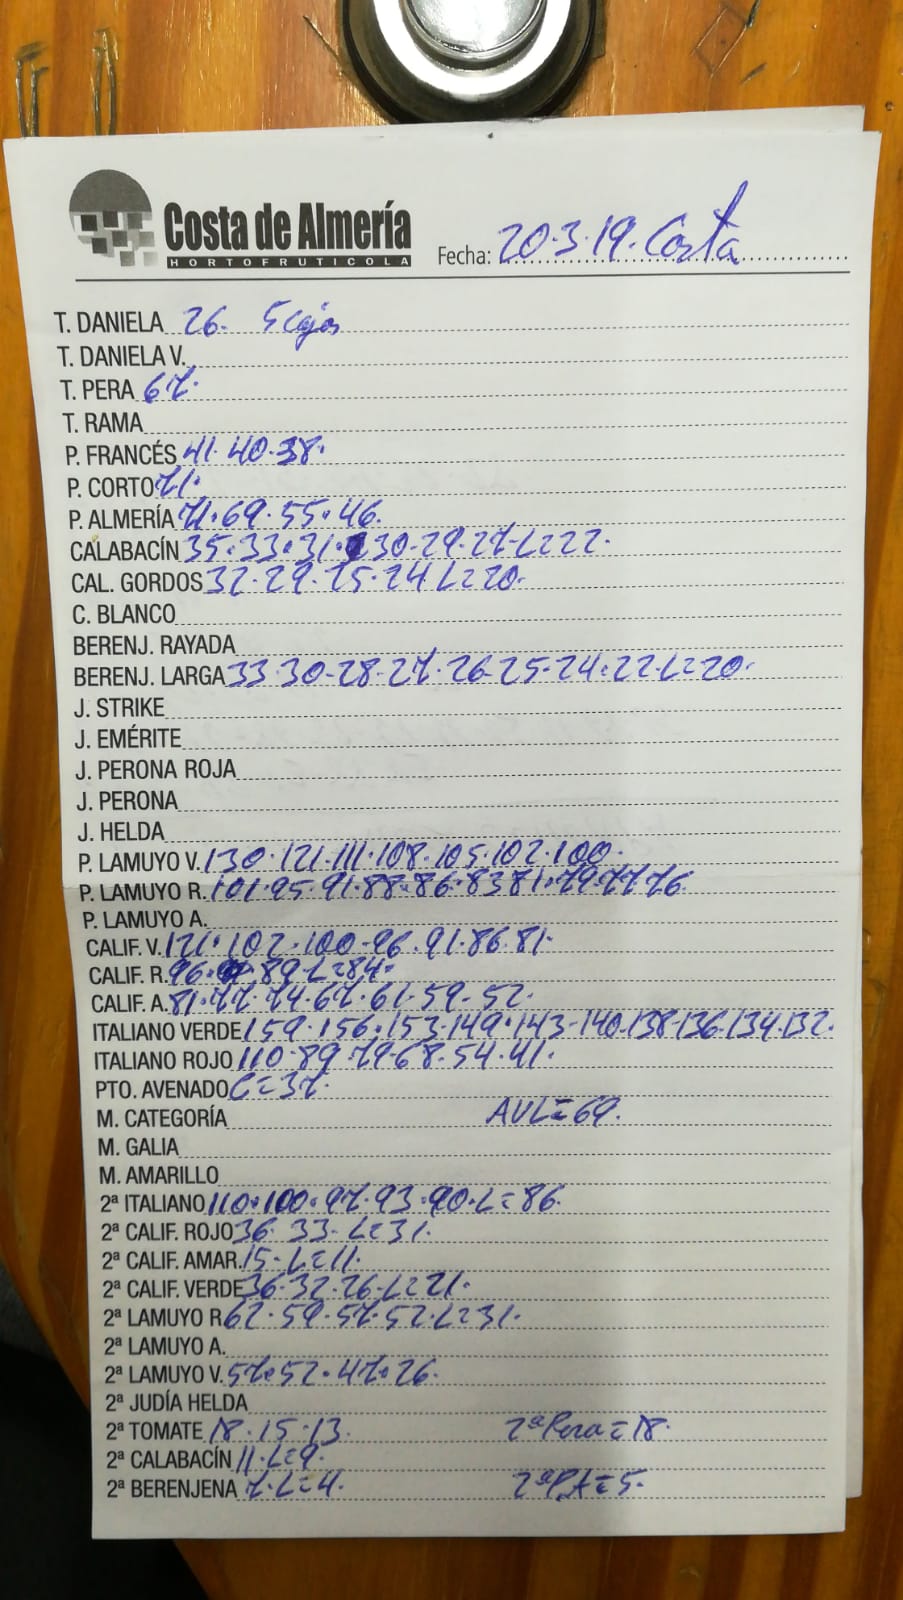 Costa de Almería
HORTOFRUTICOLA
Fecha: 20.3.19. Costa
T. DANIELA 26. 5 cajas
T. DANIELA V.
T. PERA 67.
T. RAMA
P. FRANCÉS 41. 40. 38.
P. CORTO 71.
P. ALMERÍA 71. 69. 55. 46.
CALABACÍN 35. 33. 31. 30-29-27-L=22.
CAL. GORDOS 32-29-25-24 L=20.
C. BLANCO
BERENJ. RAYADA
BERENJ. LARGA 33 30-28-27-26-25-24-22 L=20.
J. STRIKE
J. EMÉRITE
J. PERONA ROJA
J. PERONA
J. HELDA
P. LAMUYO V. 130. 121. 111. 108. 105. 102. 100.
P. LAMUYO R. 101. 95. 91. 88. 86. 83 81. 79. 77 76
P. LAMUYO A.
CALIF. V. 121. 102. 100-96. 91. 86. 81.
CALIF. R. 96. 89-L=84.
CALIF. A. 81. 77. 74. 67. 61. 59-52.
ITALIANO VERDE 159. 156. 153-149. 143-140-138-136-134-132.
ITALIANO ROJO 110-89. 79-68. 54. 41.
PTO. AVENADO C=37.
M. CATEGORÍA AVL=69.
M. GALIA
M. AMARILLO
2ª ITALIANO 110. 100. 97. 93. 90. L=86.
2ª CALIF. ROJO 36. 33-L=31.
2ª CALIF. AMAR. 15-L=11.
2ª CALIF. VERDE 36-32-26-L=21.
2ª LAMUYO R 62. 59. 57. 52. L=31.
2ª LAMUYO A.
2ª LAMUYO V. 57. 52. 47. 26.
2ª JUDÍA HELDA
2ª TOMATE 18. 15. 13. 2ª Pera=18.
2ª CALABACÍN 11. L=9.
2ª BERENJENA 7. L=4. 2ª P.A=5.